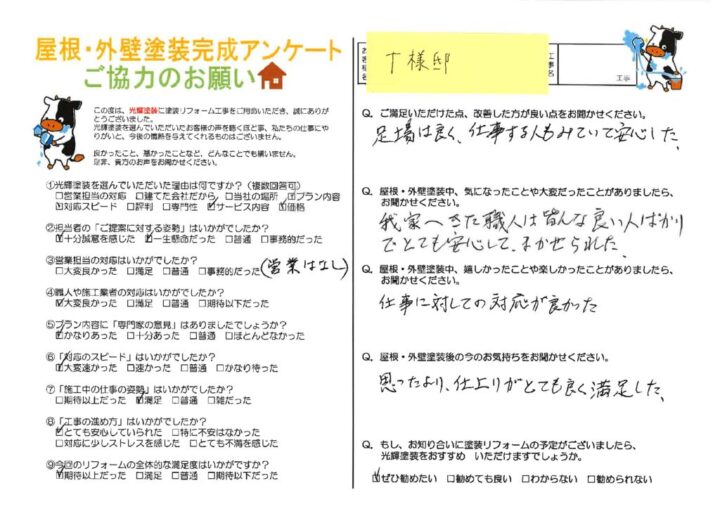 屋根・外壁塗装完成アンケート
ご協力のお願い
この度は、光輝塗装に塗装リフォーム工事をご用命いただき、誠にありが
とうございました。
光輝塗装を選んでいただいたお客様の声を聴くほど事、私たちの仕事にや
りがいと、今後の情熱を与えてくれるものはございません。
良かったこと、悪かったことなど、どんなことでも構いません。
是非、貴方のお声をお聞かせください。
①光輝塗装を選んでいただいた理由は何ですか?(複数回答可)
□営業担当の対応 □建てた会社だから □当社の場所 ☑プラン内容
☑対応スピード □評判 □専門性 ☑サービス内容 ☑価格
②担当者の「ご提案に対する姿勢」はいかがでしたか?
☑十分誠意を感じた ☑一生懸命だった □普通 □事務的だった
③営業担当の対応はいかがでしたか?
□大変良かった □満足 □普通 □事務的だった (営業はなし)
④職人や施工業者の対応はいかがでしたか?
☑大変良かった □満足 □普通 □期待以下だった
⑤プラン内容に「専門家の意見」はありましたでしょうか?
☑かなりあった □十分あった □普通 □ほとんどなかった
⑥「対応のスピード」はいかがでしたか?
☑大変速かった □速かった □普通 □かなり待った
⑦「施工中の仕事の姿勢」はいかがでしたか?
□期待以上だった ☑満足 □普通 □雑だった
⑧「工事の進め方」はいかがでしたか?
☑とても安心していられた □特に不安はなかった
□対応に少しストレスを感じた □とても不満を感じた
⑨今回のリフォームの全体的な満足度はいかがですか?
☑期待以上だった □満足 □普通 □期待以下だった
お客様名
T様邸
工事名
工事
Q. ご満足いただけた点、改善した方が良い点をお聞かせください。
足場は良く、仕事する人もみていて安心した、
Q. 屋根・外壁塗装中、気になったことや大変だったことがありましたら、
お聞かせください。
我家へきた職人は皆んな良い人ばかり
でとても安心して、まかせられた、
Q. 屋根・外壁塗装中、嬉しかったことや楽しかったことがありましたら、
お聞かせください。
仕事に対しての対応が良かった
Q. 屋根・外壁塗装後の今のお気持ちをお聞かせください。
思ったより、仕上りがとても良く満足した、
Q. もし、お知り合いに塗装リフォームの予定がございましたら、
光輝塗装をおすすめ いただけますでしょうか。
☑ぜひ勧めたい □勧めても良い □わからない □勧められない